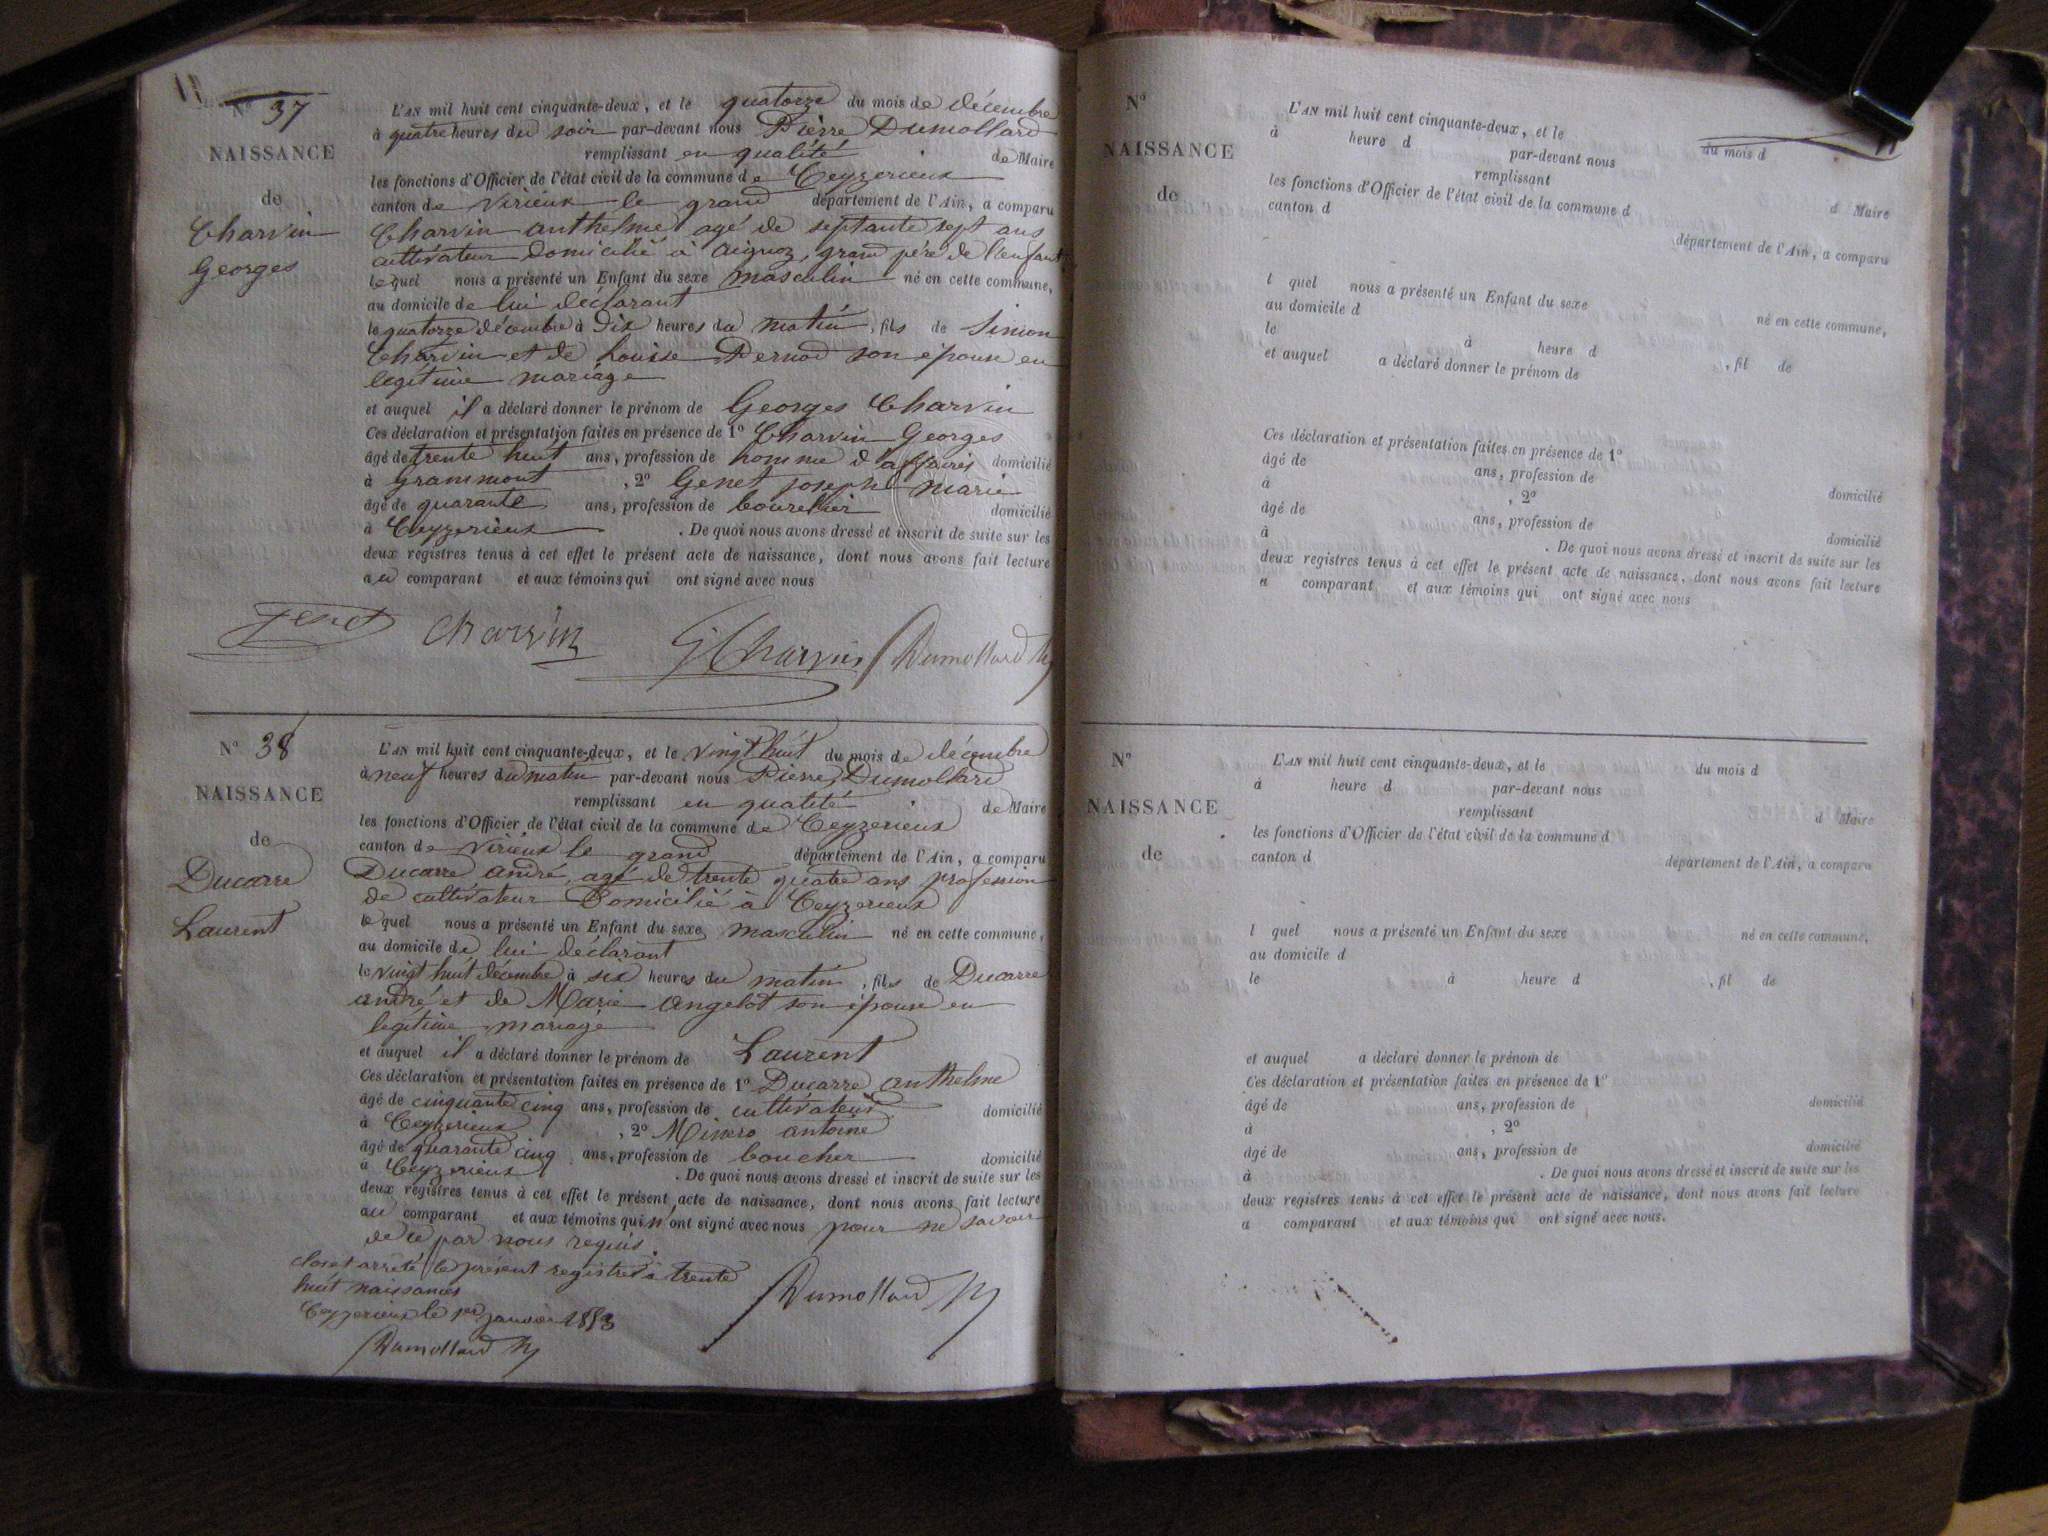 11
Nº 37
NAISSANCE
de
Charvin
Georges
L'AN mil huit cent cinquante-deux, et le quatorze du mois de décembre
à quatre heures du soir par-devant nous Pierre Dumollard
remplissant en qualité de Maire
les fonctions d'Officier de l'état civil de la commune de Ceyzerieux
canton de Virieux le grand département de l'Ain, a comparu
Charvin anthelme agé de septante sept ans
cultivateur domicilié à aignoz, grand père de l'enfant
lequel nous a présenté un Enfant du sexe masculin né en cette commune,
au domicile de lui déclarant
le quatorze décembre à Dix heures du matin, fils de Simon
Charvin et de Louise Pernod son épouse en
legitime mariage
et auquel il a déclaré donner le prénom de Georges Charvin
Ces déclaration et présentation faites en présence de 1º Charvin Georges
âgé de trente huit ans, profession de homme d'affaires domicilié
à grammont, 2º Genet joseph marie
âgé de quarante ans, profession de bourellier domicilié
à Ceyzerieux. De quoi nous avons dressé et inscrit de suite sur les
deux registres tenus à cet effet le présent acte de naissance, dont nous avons fait lecture
au comparant et aux témoins qui ont signé avec nous
Genet Charvin G Charvin Dumollard M
Nº 38
NAISSANCE
de
Ducarre
Laurent
L'AN mil huit cent cinquante-deux, et le vingt huit du mois de décembre
à neuf heures du matin par-devant nous Pierre Dumollard
remplissant en qualité de Maire
les fonctions d'Officier de l'état civil de la commune de Ceyzerieux
canton de Virieux le grand département de l'Ain, a comparu
Ducarre andré, agé de trente quatre ans profession
de cultivateur Domicilié à Ceyzerieux
lequel nous a présenté un Enfant du sexe masculin né en cette commune,
au domicile de lui déclarant
le vingt huit décembre à six heures du matin, fils de Ducarre
andré et de Marie angelot son épouse en
legitime mariage
et auquel il a déclaré donner le prénom de Laurent
Ces déclaration et présentation faites en présence de 1º Ducarre anthelme
âgé de cinquante cinq ans, profession de cultivateur domicilié
à Ceyzerieux, 2º Minero antoine
âgé de quarante cinq ans, profession de boucher domicilié
à Ceyzerieux. De quoi nous avons dressé et inscrit de suite sur les
deux registres tenus à cet effet le présent acte de naissance, dont nous avons fait lecture
au comparant et aux témoins qui n'ont signé avec nous pour ne savoir
de ce par nous requis.
Clos et arrêté le présent registre à trente
huit naissances
Ceyzerieux le 1er janvier 1853
Dumollard M
Dumollard M
Nº
NAISSANCE
de
L'AN mil huit cent cinquante-deux, et le du mois d
à heure d par-devant nous
remplissant d Maire
les fonctions d'Officier de l'état civil de la commune d
canton d département de l'Ain, a comparu
l quel nous a présenté un Enfant du sexe né en cette commune,
au domicile d
le à heure d , fil de
et auquel a déclaré donner le prénom de
Ces déclaration et présentation faites en présence de 1º
âgé de ans, profession de domicilié
à , 2º
âgé de ans, profession de domicilié
à . De quoi nous avons dressé et inscrit de suite sur les
deux registres tenus à cet effet le présent acte de naissance, dont nous avons fait lecture
a comparant et aux témoins qui ont signé avec nous
Nº
NAISSANCE
de
L'AN mil huit cent cinquante-deux, et le du mois d
à heure d par-devant nous
remplissant d Maire
les fonctions d'Officier de l'état civil de la commune d
canton d département de l'Ain, a comparu
l quel nous a présenté un Enfant du sexe né en cette commune,
au domicile d
le à heure d , fil de
et auquel a déclaré donner le prénom de
Ces déclaration et présentation faites en présence de 1º
âgé de ans, profession de domicilié
à , 2º
âgé de ans, profession de domicilié
à . De quoi nous avons dressé et inscrit de suite sur les
deux registres tenus à cet effet le présent acte de naissance, dont nous avons fait lecture
a comparant et aux témoins qui ont signé avec nous.